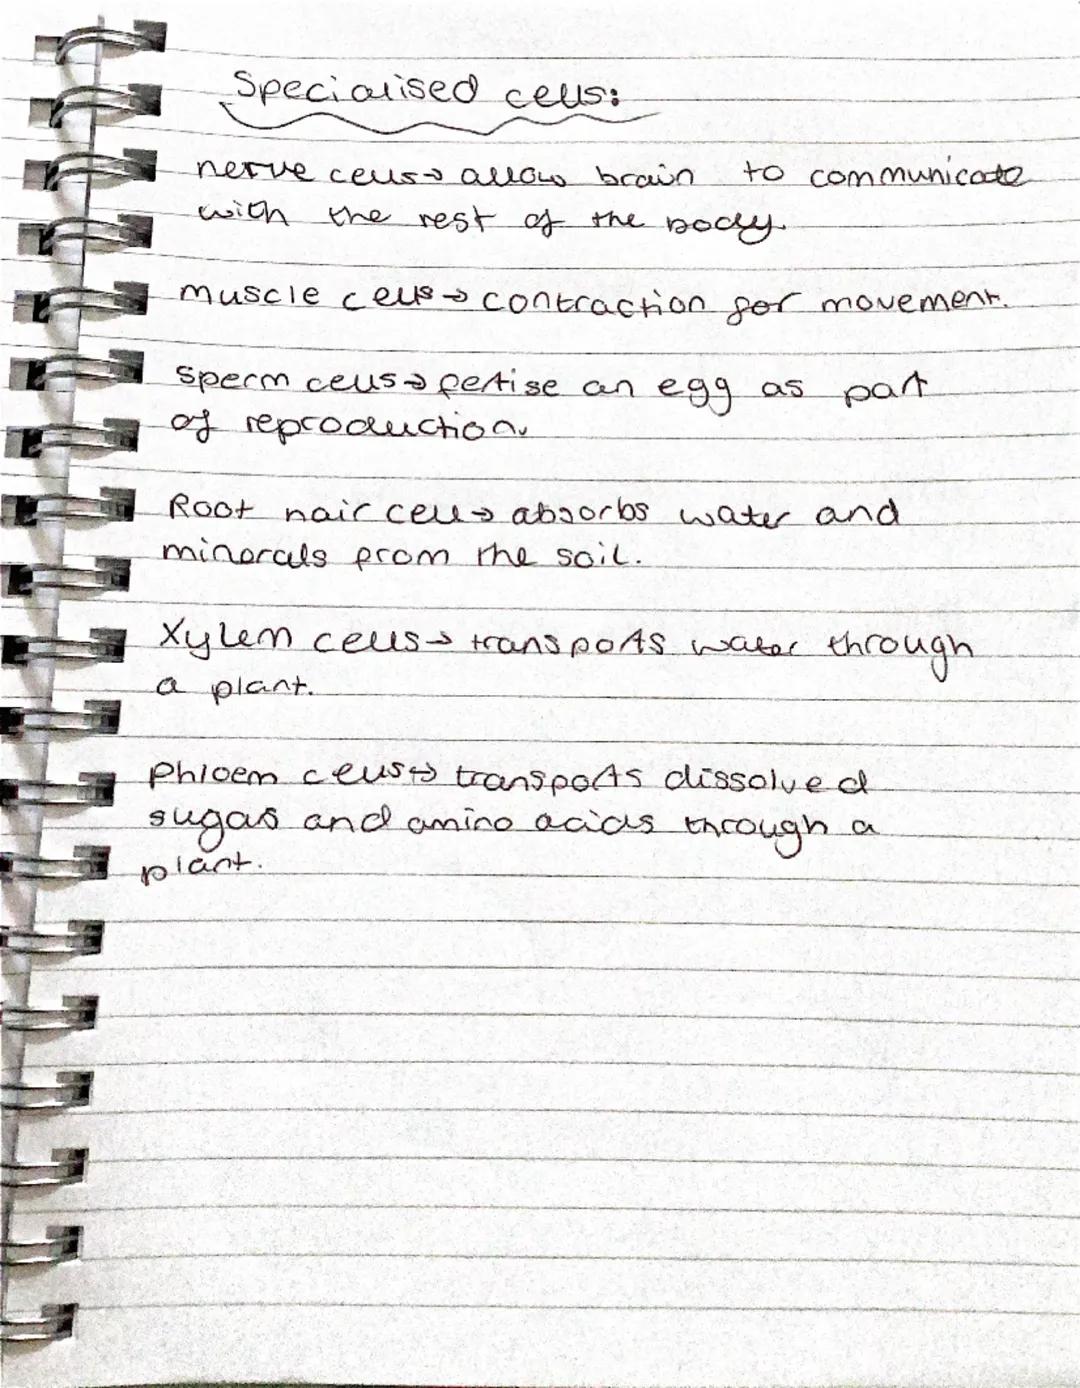 Specialised cells:
nerve cells→ allow brain to communicate
with the rest of the body.
muscle cells→ contraction for movement.
Sperm cells→ fertise an egg as part
of reproduction.
Root hair cell→ absorbs water and
minerals from the soil.
Xylem cells→ transports water through
a plant.
Phloem cells→ transports dissolved
sugars and amino acids through a
plant.